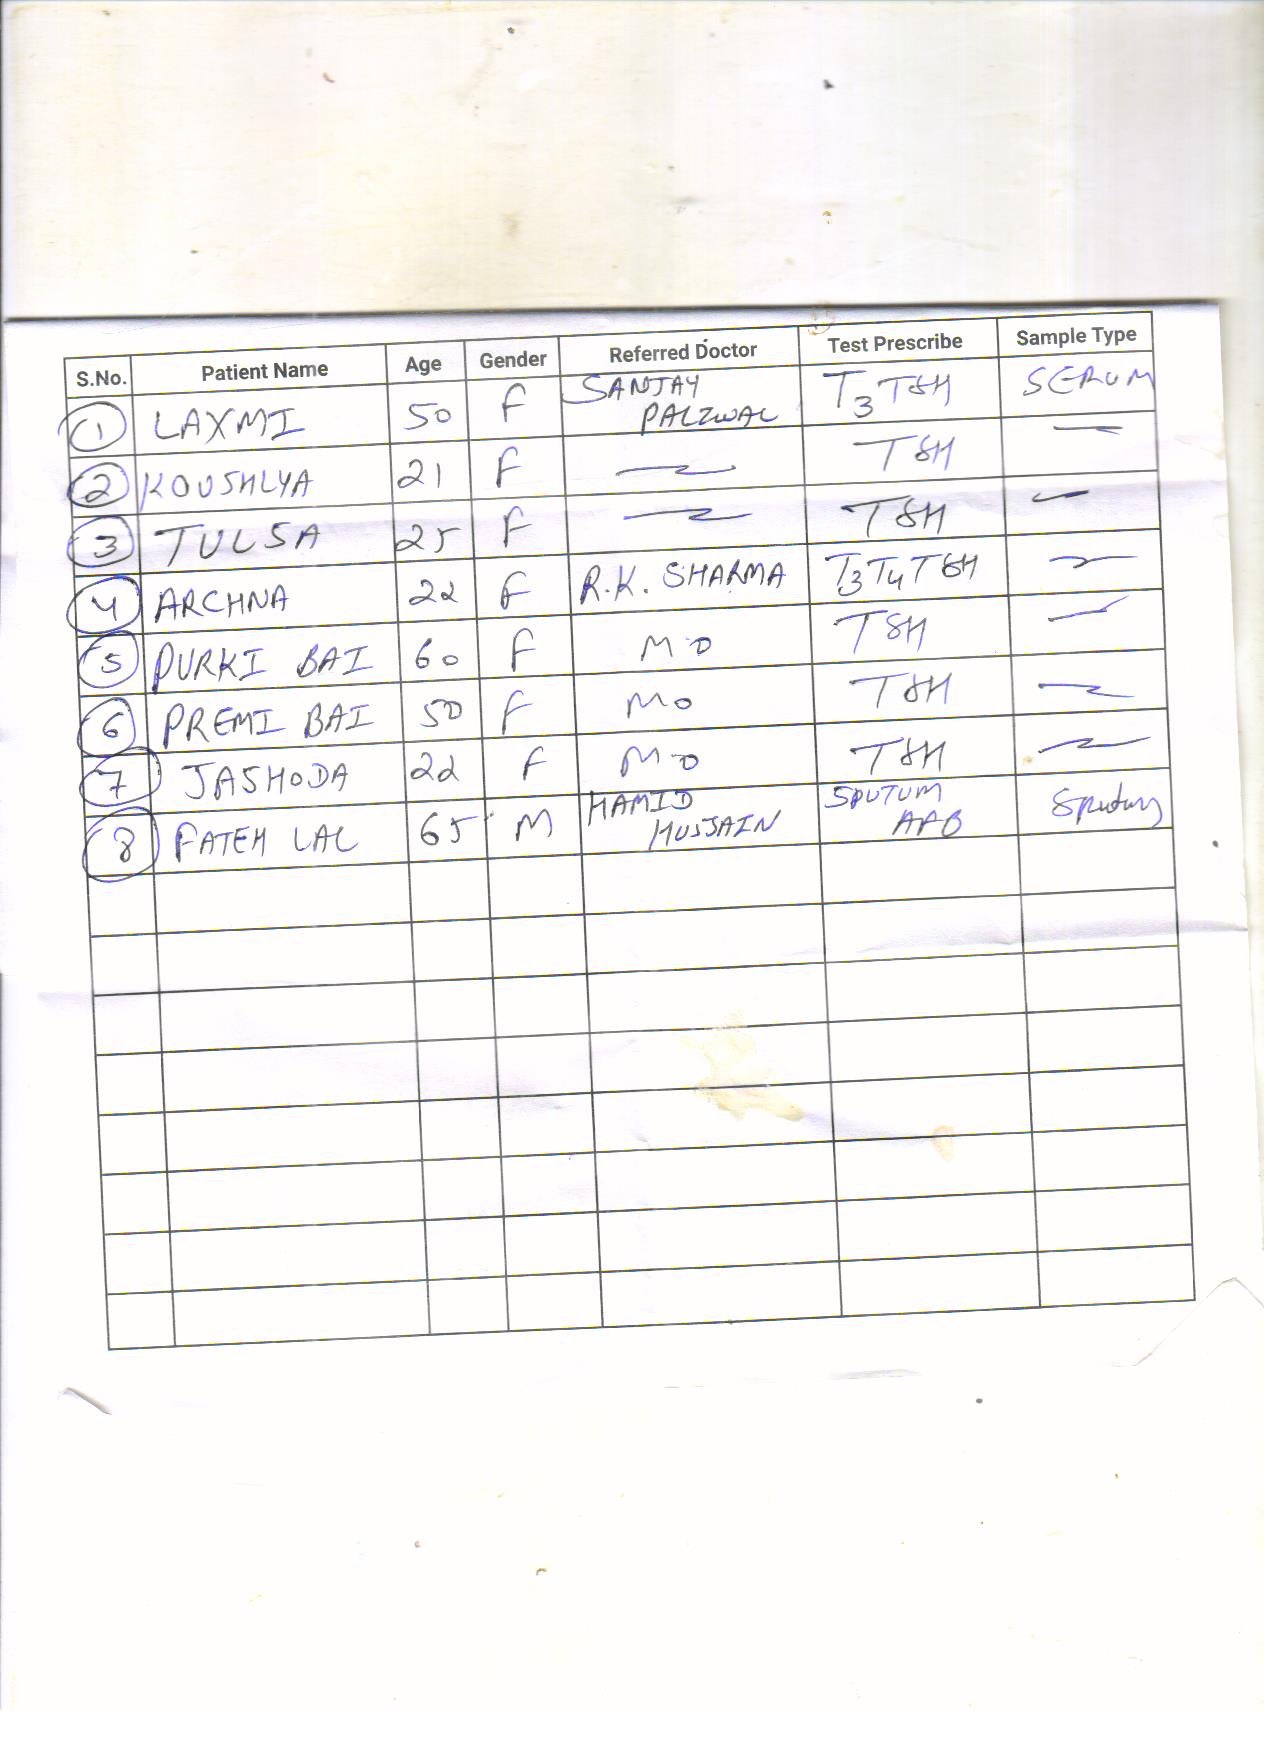 S.No. Patient Name Age Gender Referred Doctor Test Prescribe Sample Type
1 LAXMI 50 F SANJAY PALIWAL T3 TSH SERUM
2 KOUSHLYA 21 F TSH
3 TULSA 25 F TSH
4 ARCHNA 22 F R.K. SHARMA T3 T4 TSH
5 PURKI BAI 60 F MO TSH
6 PREMI BAI 50 F MO TSH
7 JASHODA 22 F MO TSH
8 FATEH LAL 65 M HAMID HUSSAIN SPUTUM AFB Sputum